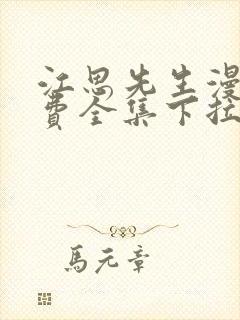 江思先生漫
费全集下拉
馬元章